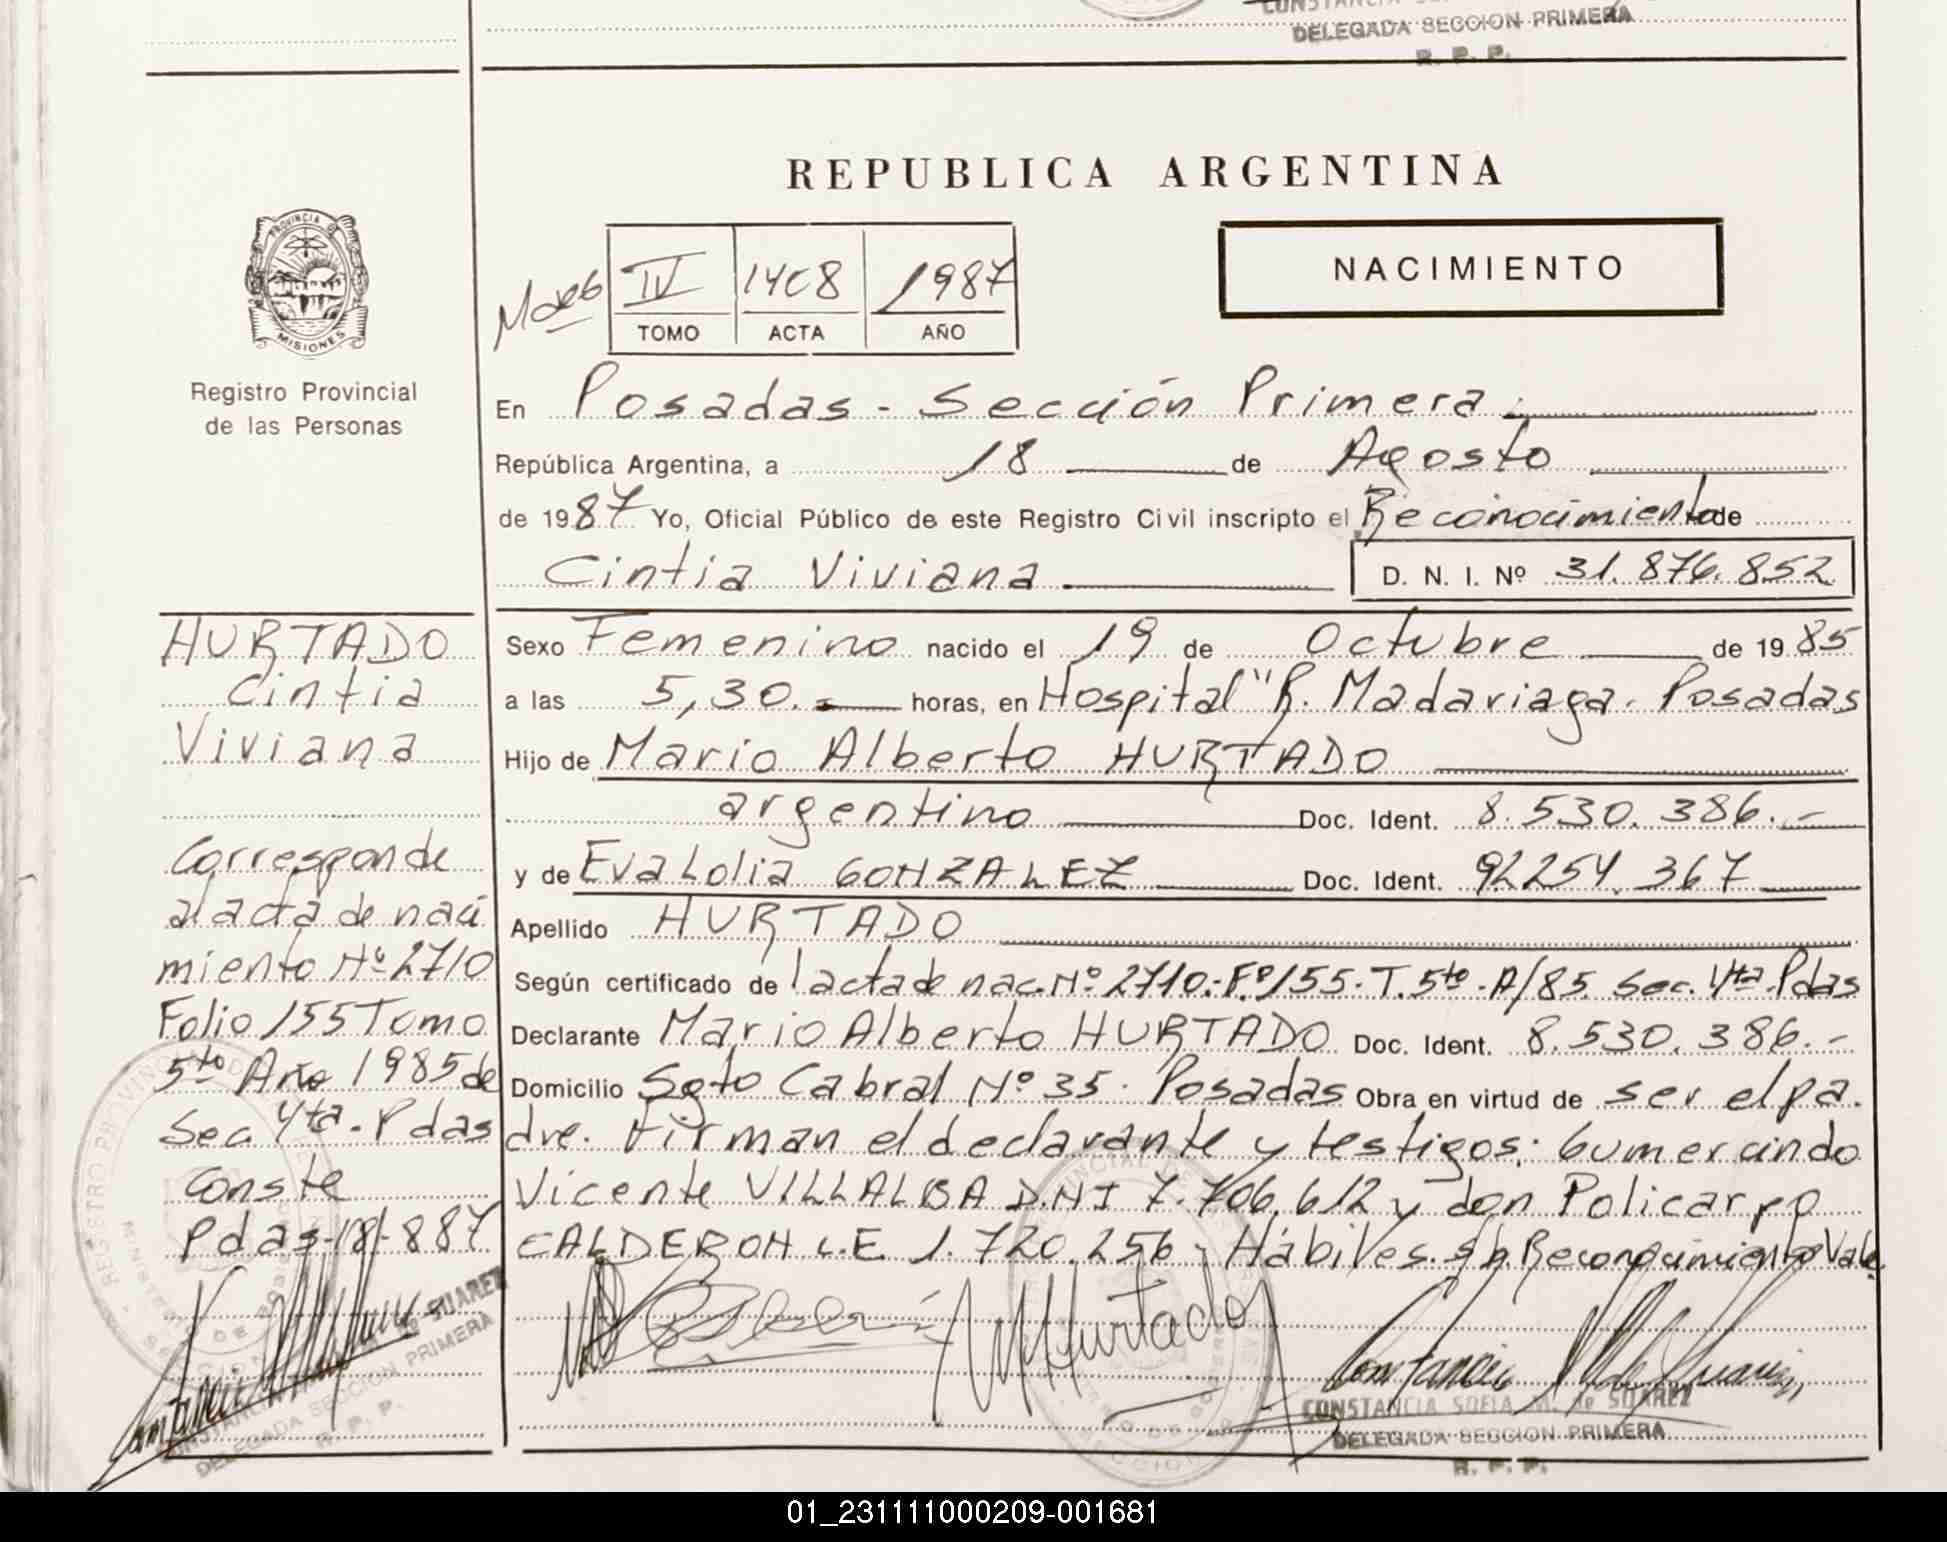 DELEGADA SECCION PRIMERA
R. P. P.
REPUBLICA ARGENTINA
PROVINCIA
MISIONES
Registro Provincial
de las Personas
IV 1408 1987
TOMO ACTA AÑO
NACIMIENTO
En Posadas - Sección Primera.
República Argentina, a 18 de Agosto
de 1987 Yo, Oficial Público de este Registro Civil inscripto el Reconocimiento de
Cintia Viviana D. N. I. Nº 31.876.852
HURTADO
Cintia
Viviana
Corresponde
al acta de naci
miento Nº 2710
Folio 155 Tomo
5to Año 1985 de
Sec. 4ta. Pdas
Conste
Pdas-18/-887
SUAREZ
DELEGADA SECCION PRIMERA
R. P. P.
Sexo Femenino nacido el 19 de Octubre de 1985
a las 5,30.- horas, en Hospital "R. Madariaga. Posadas
Hijo de Mario Alberto HURTADO
argentino Doc. Ident. 8.530.386.-
y de Eva Lolia GONZALEZ Doc. Ident. 92254.367
Apellido HURTADO
Según certificado de l acta de nac. Nº 2710.-Fº 155-T. 5to-A/85. Sec. 4ta. Pdas
Declarante Mario Alberto HURTADO Doc. Ident. 8.530.386.-
Domicilio Sgto Cabral Nº 35. Posadas Obra en virtud de ser el pa.
dre. Firman el declarante y testigos: Gumercindo
Vicente VILLALBA D.N I 7.706.612 y don Policarpo
CALDERON L.E 1.720.256- Hábiles. s/b. Reconocimiento Vale
Hurtado
Constancia M de Suarez
CONSTANCIA SOFIA M. de SUAREZ
DELEGADA SECCION PRIMERA
R. P. P.
01_231111000209-001681